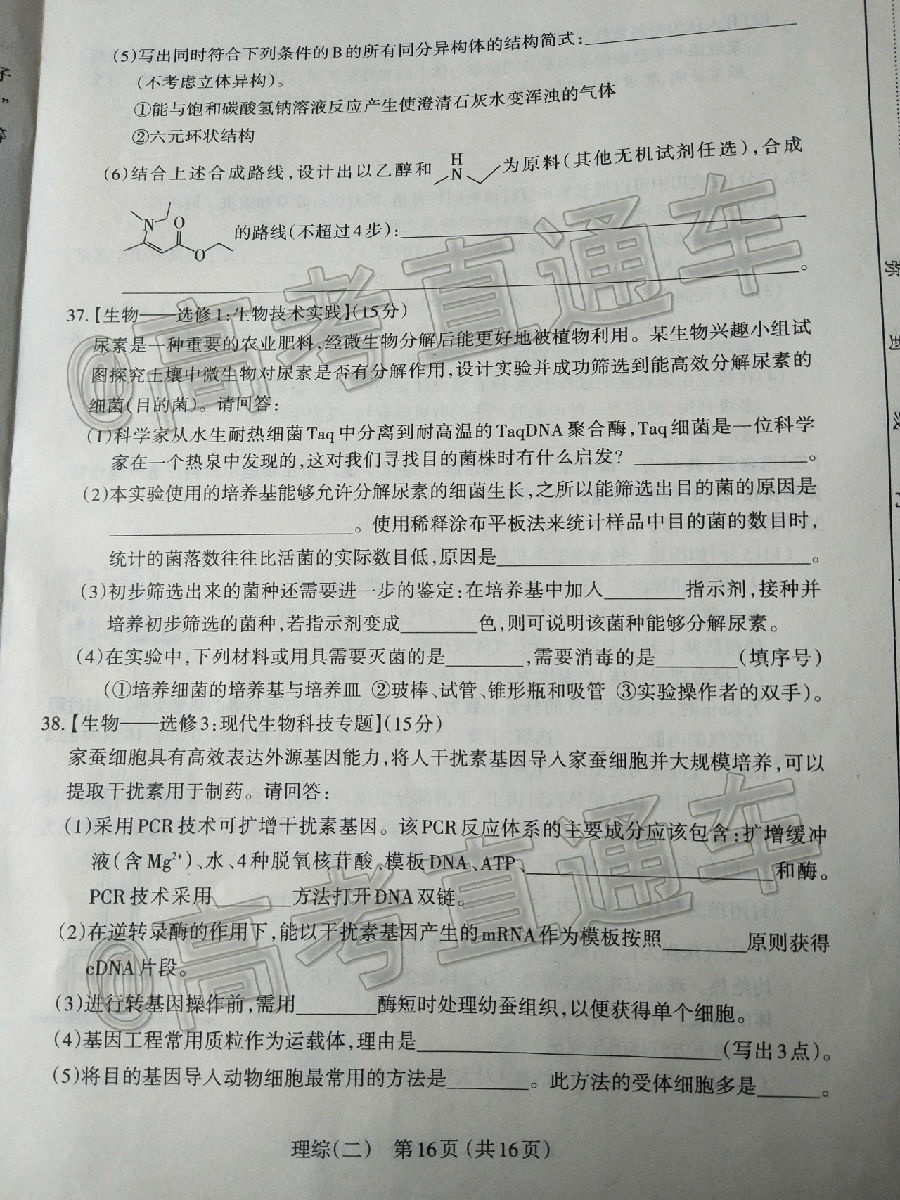 (5)写出同时符合下列条件的B的所有同分异构体的结构简式:
(不考虑立体异构)。
①能与饱和碳酸氢钠溶液反应产生使澄清石灰水变浑浊的气体
②六元环状结构
(6)结合上述合成路线,设计出以乙醇和 H N 为原料(其他无机试剂任选),合成
N O O 的路线(不超过4步):
。
37.【生物——选修1:生物技术实践】(15分)
尿素是一种重要的农业肥料,经微生物分解后能更好地被植物利用。某生物兴趣小组试
图探究土壤中微生物对尿素是否有分解作用,设计实验并成功筛选到能高效分解尿素的
细菌(目的菌)。请回答:
(1)科学家从水生耐热细菌Taq中分离到耐高温的TaqDNA聚合酶,Taq细菌是一位科学
家在一个热泉中发现的,这对我们寻找目的菌株时有什么启发? 。
(2)本实验使用的培养基能够允许分解尿素的细菌生长,之所以能筛选出目的菌的原因是
。使用稀释涂布平板法来统计样品中目的菌的数目时,
统计的菌落数往往比活菌的实际数目低,原因是 。
(3)初步筛选出来的菌种还需要进一步的鉴定:在培养基中加入 指示剂,接种并
培养初步筛选的菌种,若指示剂变成 色,则可说明该菌种能够分解尿素。
(4)在实验中,下列材料或用具需要灭菌的是 ,需要消毒的是 (填序号)
(①培养细菌的培养基与培养皿 ②玻棒、试管、锥形瓶和吸管 ③实验操作者的双手)。
38.【生物——选修3:现代生物科技专题】(15分)
家蚕细胞具有高效表达外源基因能力,将人干扰素基因导入家蚕细胞并大规模培养,可以
提取干扰素用于制药。请回答:
(1)采用PCR技术可扩增干扰素基因。该PCR反应体系的主要成分应该包含:扩增缓冲
液(含Mg²⁺)、水、4种脱氧核苷酸、模板DNA、ATP、 和酶。
PCR技术采用 方法打开DNA双链。
(2)在逆转录酶的作用下,能以干扰素基因产生的mRNA作为模板按照 原则获得
cDNA片段。
(3)进行转基因操作前,需用 酶短时处理幼蚕组织,以便获得单个细胞。
(4)基因工程常用质粒作为运载体,理由是 (写出3点)。
(5)将目的基因导入动物细胞最常用的方法是 。此方法的受体细胞多是 。
理综(二) 第16页(共16页)
@高考直通车
@高考直通车
弥
封
线
内